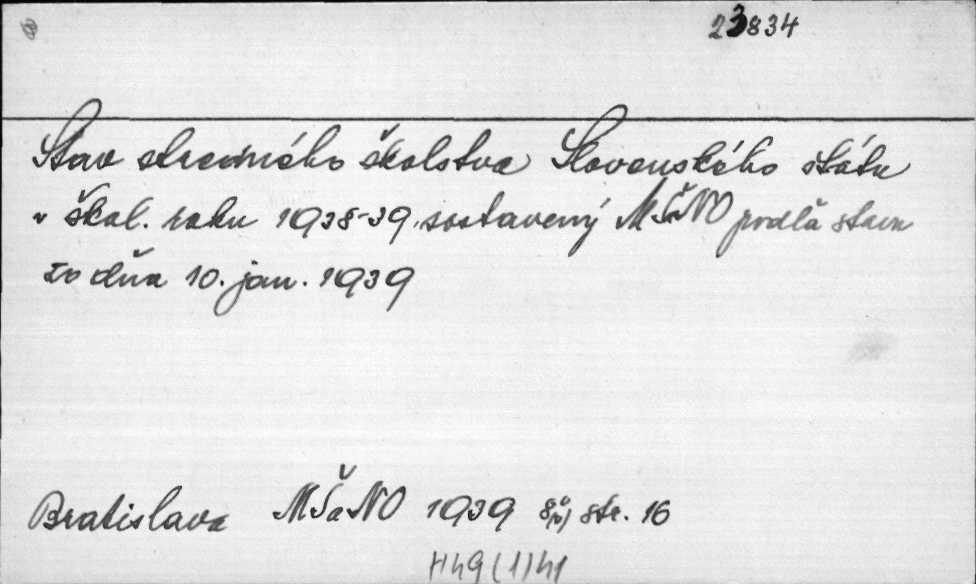 23834
Stav stredného školstva Slovenského štátu
v škol. roku 1938-39, sostavený MŠaNO podľa stavu
zo dňa 10. jan. 1939
Bratislava MŠaNO 1939 8° str. 16